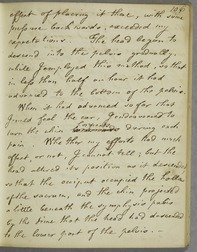 effect of placing it there, with some
pressure backwards, exceeded my
expectations. The head began to
descend into the pelvis gradually,
while I employed this method, so that
in less than half an hour it had
advanced to the bottom of the pelvis.
When it had advanced so far that
I could feel the ear, I endeavoured to
turn the chin forwards during each
pain. Whether my efforts had much
effect, or not, I cannot tell; but the
head altered its position as it descended
so that the occiput occupied the hollow
of the sacrum, and the chin projected
a little beneath the symphysis pubis
by the time that the head had descended
to the lower part of the pelvis. -